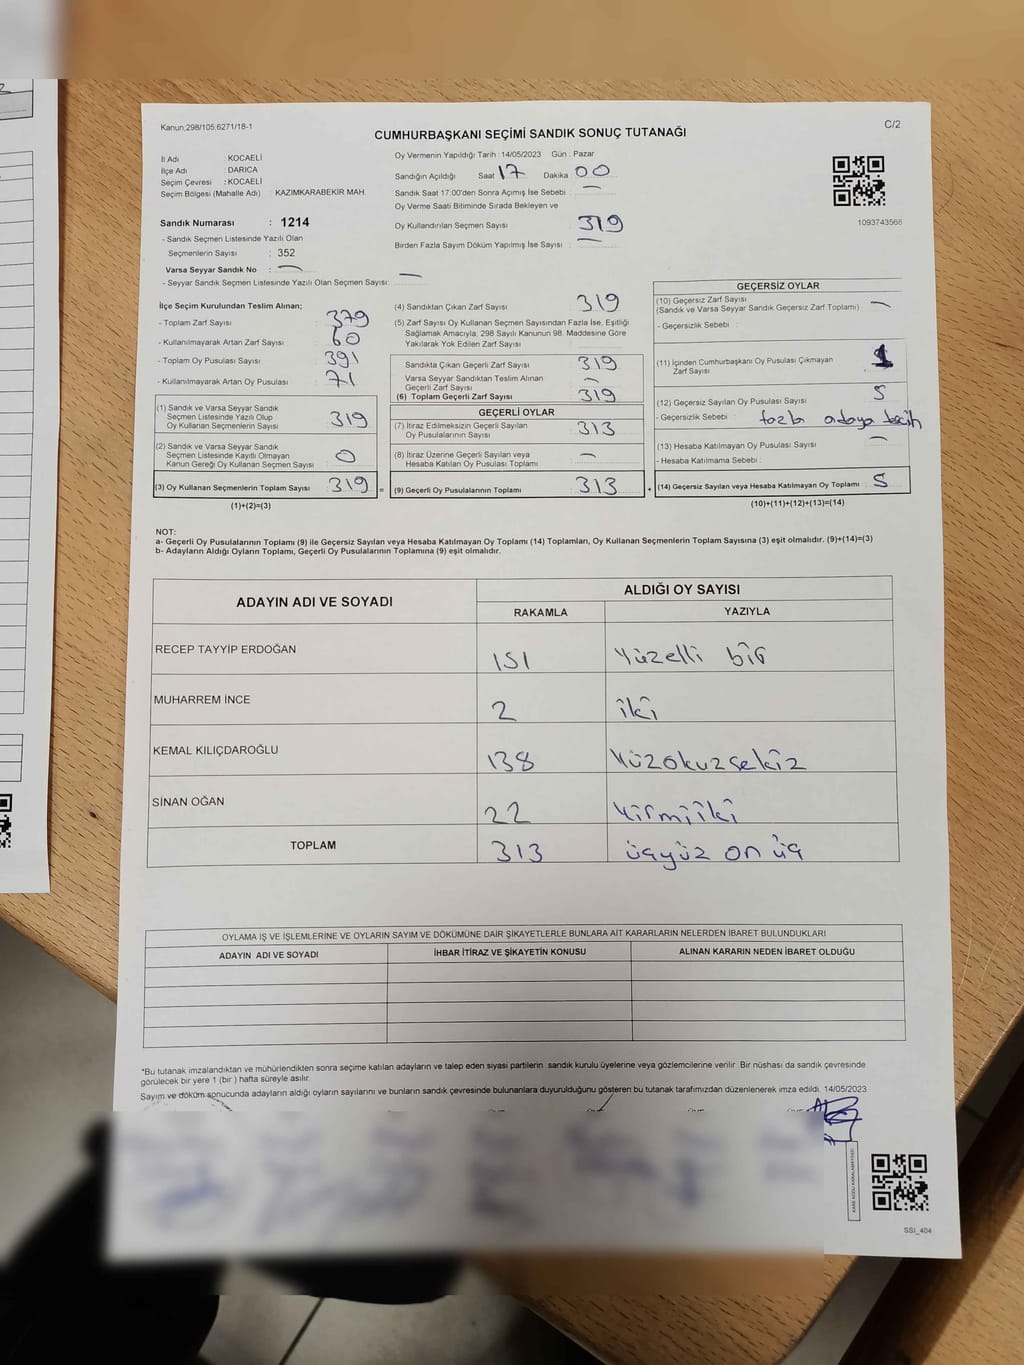 Kanun;298/105;6271/18-1
C/2
CUMHURBAŞKANI SEÇİMİ SANDIK SONUÇ TUTANAĞI
İl Adı : KOCAELİ
İlçe Adı : DARICA
Seçim Çevresi : KOCAELİ
Seçim Bölgesi (Mahalle Adı) KAZIMKARABEKİR MAH.
Sandık Numarası : 1214
- Sandık Seçmen Listesinde Yazılı Olan
Seçmenlerin Sayısı : 352
Varsa Seyyar Sandık No : —
- Seyyar Sandık Seçmen Listesinde Yazılı Olan Seçmen Sayısı: —
Oy Vermenin Yapıldığı Tarih : 14/05/2023 Gün : Pazar
Sandığın Açıldığı Saat 17 Dakika 00
Sandık Saat 17:00'den Sonra Açımış İse Sebebi : —
Oy Verme Saati Bitiminde Sırada Bekleyen ve
Oy Kullandırılan Seçmen Sayısı 319
Birden Fazla Sayım Döküm Yapılmış İse Sayısı : —
1093743566
İlçe Seçim Kurulundan Teslim Alınan;
- Toplam Zarf Sayısı : 379
- Kullanılmayarak Artan Zarf Sayısı : 60
- Toplam Oy Pusulası Sayısı : 391
- Kullanılmayarak Artan Oy Pusulası : 71
(1) Sandık ve Varsa Seyyar Sandık
Seçmen Listesinde Yazılı Olup
Oy Kullanan Seçmenlerin Sayısı 319
(2) Sandık ve Varsa Seyyar Sandık
Seçmen Listesinde Kayıtlı Olmayan
Kanun Gereği Oy Kullanan Seçmen Sayısı 0
(3) Oy Kullanan Seçmenlerin Toplam Sayısı 319 =
(1)+(2)=(3)
(4) Sandıktan Çıkan Zarf Sayısı 319
(5) Zarf Sayısı Oy Kullanan Seçmen Sayısından Fazla İse, Eşitliği
Sağlamak Amacıyla, 298 Sayılı Kanunun 98. Maddesine Göre
Yakılarak Yok Edilen Zarf Sayısı
Sandıkta Çıkan Geçerli Zarf Sayısı 319
Varsa Seyyar Sandıktan Teslim Alınan
Geçerli Zarf Sayısı —
(6) Toplam Geçerli Zarf Sayısı 319
GEÇERLİ OYLAR
(7) İtiraz Edilmeksizin Geçerli Sayılan
Oy Pusulalarının Sayısı 313
(8) İtiraz Üzerine Geçerli Sayılan veya
Hesaba Katılan Oy Pusulası Toplamı —
(9) Geçerli Oy Pusulalarının Toplamı 313 +
GEÇERSİZ OYLAR
(10) Geçersiz Zarf Sayısı
(Sandık ve Varsa Seyyar Sandık Geçersiz Zarf Toplamı) —
- Geçersizlik Sebebi :
(11) İçinden Cumhurbaşkanı Oy Pusulası Çıkmayan
Zarf Sayısı 1
(12) Geçersiz Sayılan Oy Pusulası Sayısı 5
- Geçersizlik Sebebi : fazla adaya tecih
(13) Hesaba Katılmayan Oy Pusulası Sayısı —
- Hesaba Katılmama Sebebi :
(14) Geçersiz Sayılan veya Hesaba Katılmayan Oy Toplamı 5
(10)+(11)+(12)+(13)=(14)
NOT:
a- Geçerli Oy Pusulalarının Toplamı (9) ile Geçersiz Sayılan veya Hesaba Katılmayan Oy Toplamı (14) Toplamları, Oy Kullanan Seçmenlerin Toplam Sayısına (3) eşit olmalıdır. (9)+(14)=(3)
b- Adayların Aldığı Oyların Toplamı, Geçerli Oy Pusulalarının Toplamına (9) eşit olmalıdır.
ADAYIN ADI VE SOYADI ALDIĞI OY SAYISI
RAKAMLA YAZIYLA
RECEP TAYYİP ERDOĞAN 151 Yüzelli bir
MUHARREM İNCE 2 iki
KEMAL KILIÇDAROĞLU 138 Yüzokuzsekiz
SİNAN OĞAN 22 Yirmiiki
TOPLAM 313 üçyüz on üç
OYLAMA İŞ VE İŞLEMLERİNE VE OYLARIN SAYIM VE DÖKÜMÜNE DAİR ŞİKAYETLERLE BUNLARA AİT KARARLARIN NELERDEN İBARET BULUNDUKLARI
ADAYIN ADI VE SOYADI İHBAR İTİRAZ VE ŞİKAYETİN KONUSU ALINAN KARARIN NEDEN İBARET OLDUĞU
*Bu tutanak imzalandıktan ve mühürlendikten sonra seçime katılan adayların ve talep eden siyasi partilerin sandık kurulu üyelerine veya gözlemcilerine verilir. Bir nüshası da sandık çevresinde
görülecek bir yere 1 (bir ) hafta süreyle asılır.
Sayım ve döküm sonucunda adayların aldığı oyların sayılarını ve bunların sandık çevresinde bulunanlara duyurulduğunu gösteren bu tutanak tarafımızdan düzenlenerek imza edildi. 14/05/2023
SSI_404